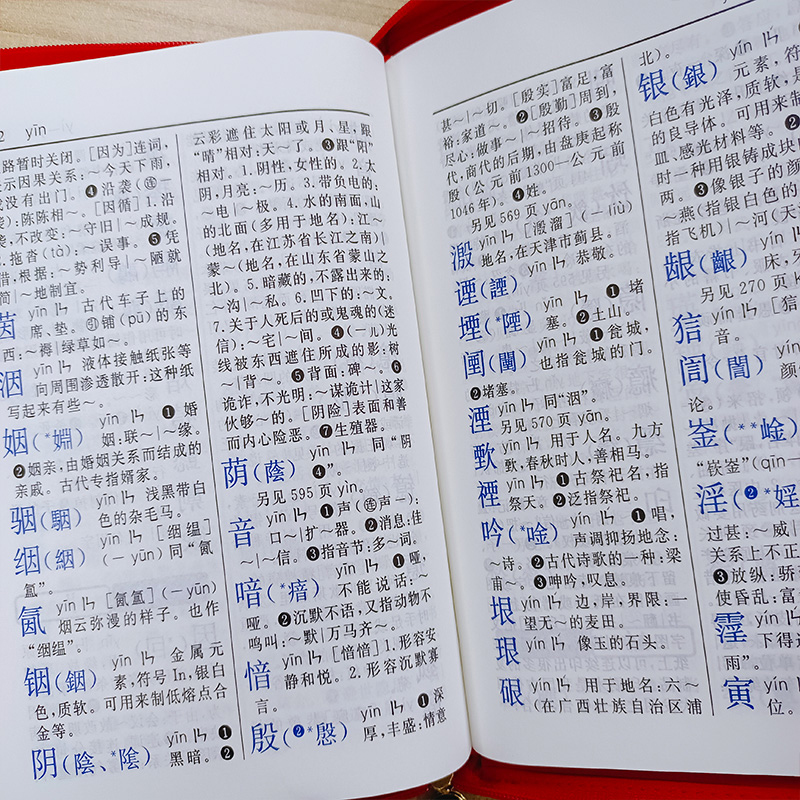 2 yīn
路暂时关闭。[因为]连词,
示因果关系:~今天下雨,
没有出门。❹沿袭(㊣一
):陈陈相~。[因循]1.沿
袭,不改变:~守旧|~成规。
.拖沓(tà):~误事。❺凭
借,根据:~势利导|~陋就
简|~地制宜。
茵 yīn ㄧㄣ 古代车子上的
席、垫。㊕铺(pū)的东
西:~褥|绿草如~。
洇 yīn ㄧㄣ 液体接触纸张等
向周围渗透散开:这种纸
写起来有些~。
姻(*婣) yīn ㄧㄣ ❶婚
姻:联~|~缘。
❷姻亲,由婚姻关系而结成的
亲戚。古代专指婿家。
骃(駰) yīn ㄧㄣ 浅黑带白
色的杂毛马。
绁(絪) yīn ㄧㄣ [絪缊]
(-yūn)同“氤
氲”。
氤 yīn ㄧㄣ [氤氲](-yūn)
烟云弥漫的样子。也作
“絪缊”。
铟(銦) yīn ㄧㄣ 金属元
素,符号 In,银白
色,质软。可用来制低熔点合
金等。
阴(陰、*隂) yīn ㄧㄣ ❶
黑暗。❷
云彩遮住太阳或月、星,跟
“晴”相对:天~了。❸跟“阳”
相对。1.阴性,女性的。2.太
阴,月亮:~历。3.带负电的:
~电|~极。4.水的南面,山
的北面(多用于地名):江~
(地名,在江苏省长江之南)|
蒙~(地名,在山东省蒙山之
北)。5.暗藏的,不露出来的:
~沟|~私。6.凹下的:~文。
7.关于人死后的或鬼魂的(迷
信):~宅|~间。❹(一儿)光
线被东西遮住所成的影:树
~|背~。❺背面:碑~。❻
诡诈,不光明:~谋诡计|这家
伙够~的。[阴险]表面和善
而内心险恶。❼生殖器。
荫(蔭) yīn ㄧㄣ 同“阴
❹”。
另见 595 页 yìn。
音 yīn ㄧㄣ ❶声(㊣声一):
口~|扩~器。❷消息:佳
~|~信。❸指音节:多~词。
喑(*瘖) yīn ㄧㄣ ❶哑,
不能说话:~
哑。❷沉默不语,又指动物不
鸣叫:~默|万马齐~。
愔 yīn ㄧㄣ [愔愔]1.形容安
静和悦。2.形容沉默寡
言。
殷(❷*慇) yīn ㄧㄣ ❶深
厚,丰盛:情意
甚~|~切。[殷实]富足,富
裕:家道~。❷[殷勤]周到,
尽心:做事~|~招待。❸殷
代,商代的后期,由盘庚起称
殷(公元前1300—公元前
1046年)。❹姓。
另见 569 页 yān。
溵 yīn ㄧㄣ [溵溜](-liù)
地名,在天津市蓟县。
䜣(諲) yīn ㄧㄣ 恭敬。
堙(*陻) yīn ㄧㄣ ❶堵
塞。❷土山。
闉(闉) yīn ㄧㄣ ❶瓮城,
也指瓮城的门。
❷堵塞。
湮 yīn ㄧㄣ 同“洇”。
另见 570 页 yān。
歅 yīn ㄧㄣ 用于人名。九方
歅,春秋时人,善相马。
禋 yīn ㄧㄣ ❶古祭祀名,指
祭天。❷泛指祭祀。
吟(*唫) yín ㄧㄣˊ ❶唱,
声调抑扬地念:
~诗。❷古代诗歌的一种:梁
甫~。❸呻吟,叹息。
垠 yín ㄧㄣˊ 边,岸,界限:一
望无~的麦田。
珢 yín ㄧㄣˊ 像玉的石头。
硍 yín ㄧㄣˊ 用于地名:六~
(在广西壮族自治区浦
北)。
银(銀) yín ㄧㄣˊ
元素,符
白色有光泽,质软,是
的良导体。可用来制
皿、感光材料等。❷
时一种用银铸成块
两。❸像银子的颜
~燕(指银白色的
指飞机)|~河(天
龈(齦) yín ㄧㄣˊ
床,牙
另见 270 页
狺 yín ㄧㄣˊ [狺
音。
訚(誾) yín
颜
论。
崟(**崯) yín
“嵚崟”(qīn-
淫(❷*婬) yín
过甚:~威|
关系上不正
❸放纵:骄
使昏乱:富
霪 yín ㄧㄣˊ
下得过
雨”。
寅 yín ㄧㄣˊ
位。